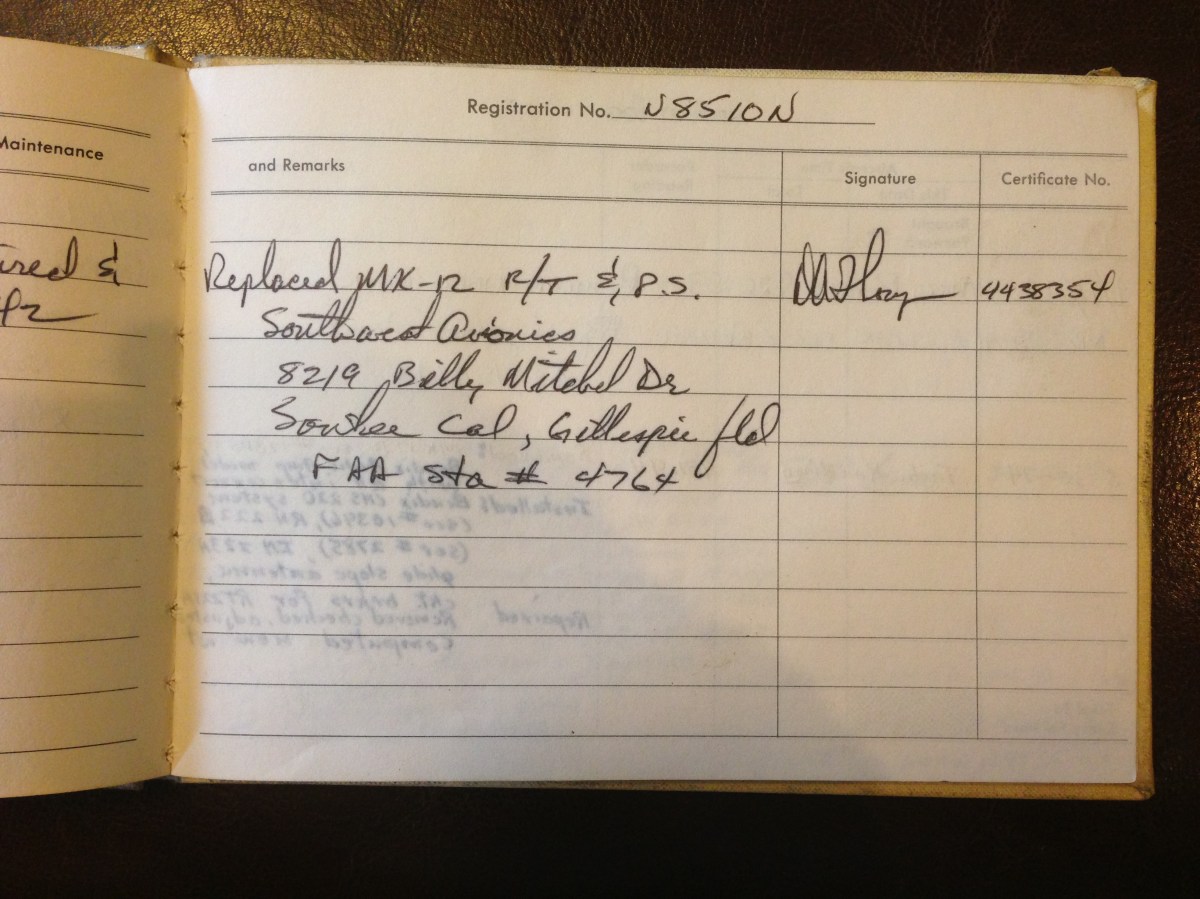 Registration No. N8510N
Maintenance
and Remarks Signature Certificate No.
ired &
Replaced MK-12 R/T & P.S. 4438354
Southwest Avionics
8219 Billy Mitchel Dr
Cal, Gillespie fld
FAA Sta # 4764